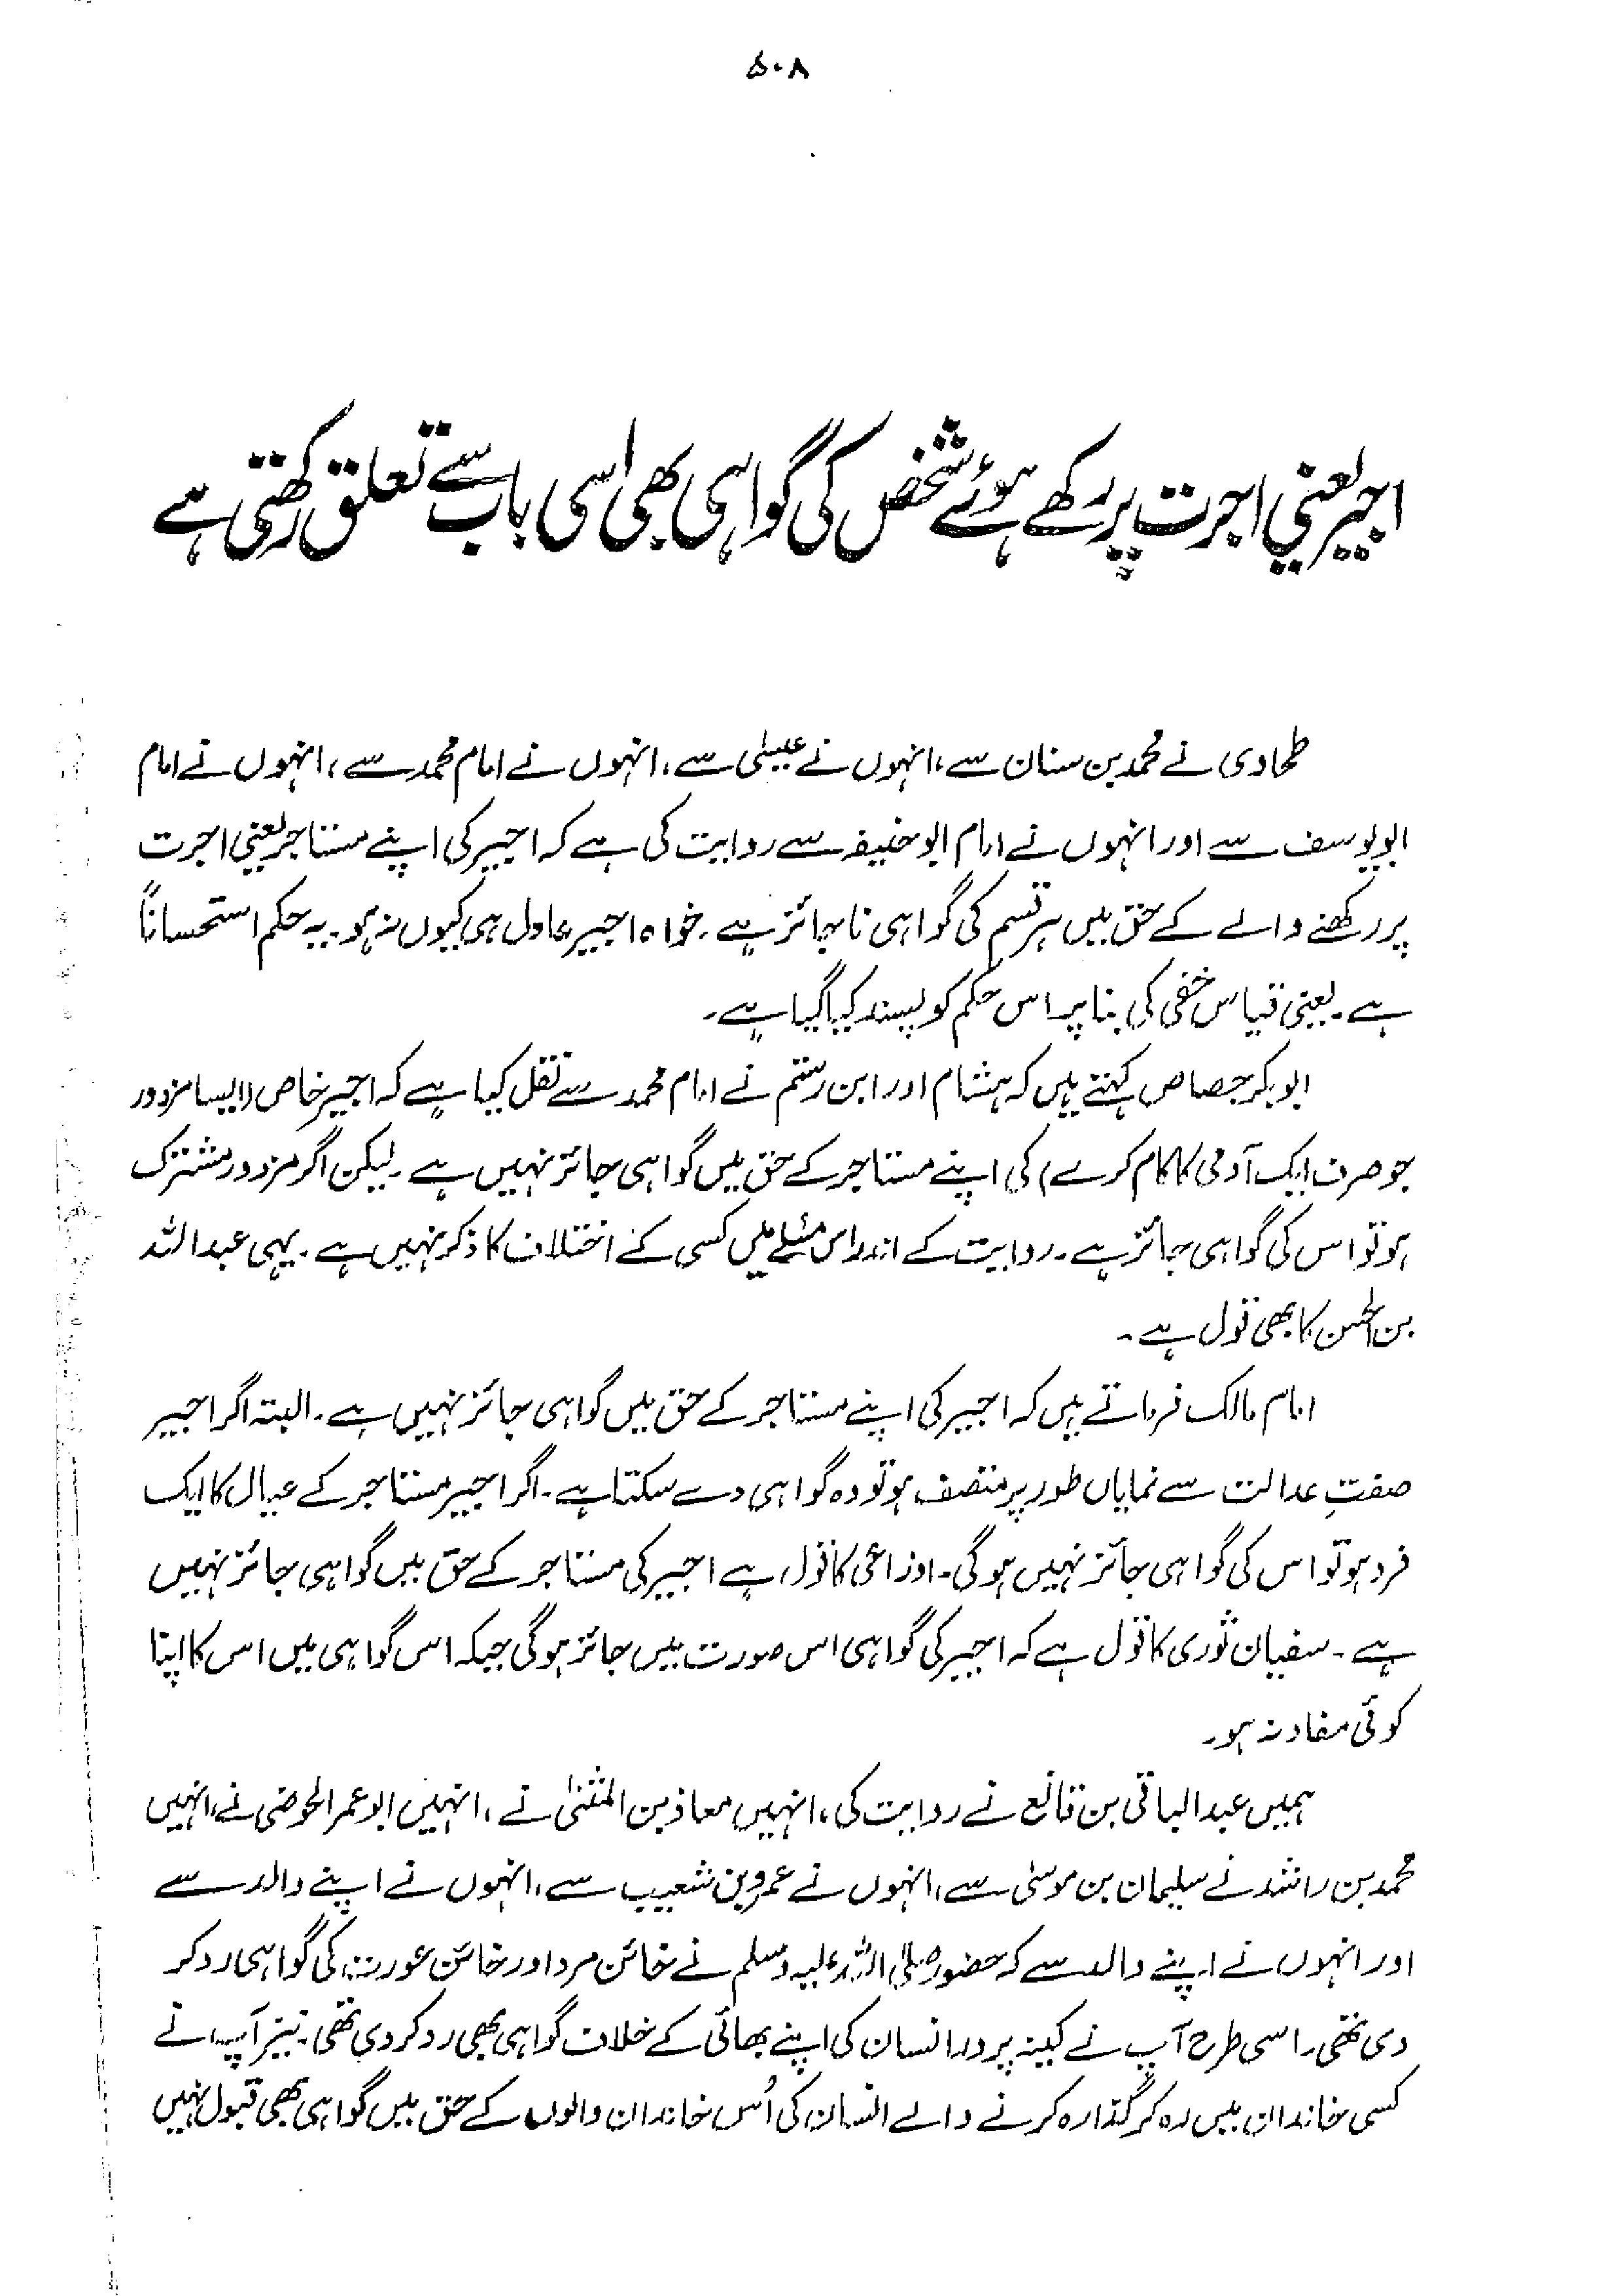 ۵۰۸
اجیر یعنی اجرت پر رکھے ہوئے شخص کی گواہی بھی اسی باب سے تعلق رکھتی ہے
طحاوی نے محمد بن سنان سے، انہوں نے عیسیٰ سے، انہوں نے امام محمد سے، انہوں نے امام
ابویوسف سے اور انہوں نے امام ابوحنیفہ سے روایت کی ہے کہ اجیر کی اپنے مستاجر یعنی اجرت
پر رکھنے والے کے حق میں ہر قسم کی گواہی ناجائز ہے۔ خواہ اجیر عادل ہی کیوں نہ ہو۔ یہ حکم استحساناً
ہے۔ یعنی قیاس خفی کی بنا پر اس حکم کو پسند کیا گیا ہے۔
ابوبکر جصاص کہتے ہیں کہ ہشام اور ابن رستم نے امام محمد سے نقل کیا ہے کہ اجیر خاص (ایسا مزدور
جو صرف ایک آدمی کا کام کرے) کی اپنے مستاجر کے حق میں گواہی جائز نہیں ہے۔ لیکن اگر مزدور مشترک
ہو تو اس کی گواہی جائز ہے۔ روایت کے اندر اس مسئلے میں کسی کے اختلاف کا ذکر نہیں ہے۔ یہی عبداللہ
بن الحسن کا بھی قول ہے۔
امام مالک فرماتے ہیں کہ اجیر کی اپنے مستاجر کے حق میں گواہی جائز نہیں ہے۔ البتہ اگر اجیر
صفتِ عدالت سے نمایاں طور پر متصف ہو تو وہ گواہی دے سکتا ہے۔ اگر اجیر مستاجر کے عیال کا ایک
فرد ہو تو اس کی گواہی جائز نہیں ہوگی۔ اوزاعی کا قول ہے اجیر کی مستاجر کے حق میں گواہی جائز نہیں
ہے۔ سفیان ثوری کا قول ہے کہ اجیر کی گواہی اس صورت میں جائز ہوگی جبکہ اس گواہی میں اس کا اپنا
کوئی مفاد نہ ہو۔
ہمیں عبدالباقی بن قانع نے روایت کی، انہیں معاذ بن المثنیٰ نے، انہیں ابوعمر الحوضی نے، انہیں
محمد بن راشد نے سلیمان بن موسیٰ سے، انہوں نے عمرو بن شعیب سے، انہوں نے اپنے والد سے
اور انہوں نے اپنے والد سے کہ حضور صلی اللہ علیہ وسلم نے خائن مرد اور خائن عورت کی گواہی رد کر
دی تھی۔ اسی طرح آپ نے کینہ پرور انسان کی اپنے بھائی کے خلاف گواہی بھی رد کر دی تھی۔ نیز آپ نے
کسی خاندان میں رہ کر گذارہ کرنے والے انسان کی اُس خاندان والوں کے حق میں گواہی بھی قبول نہیں